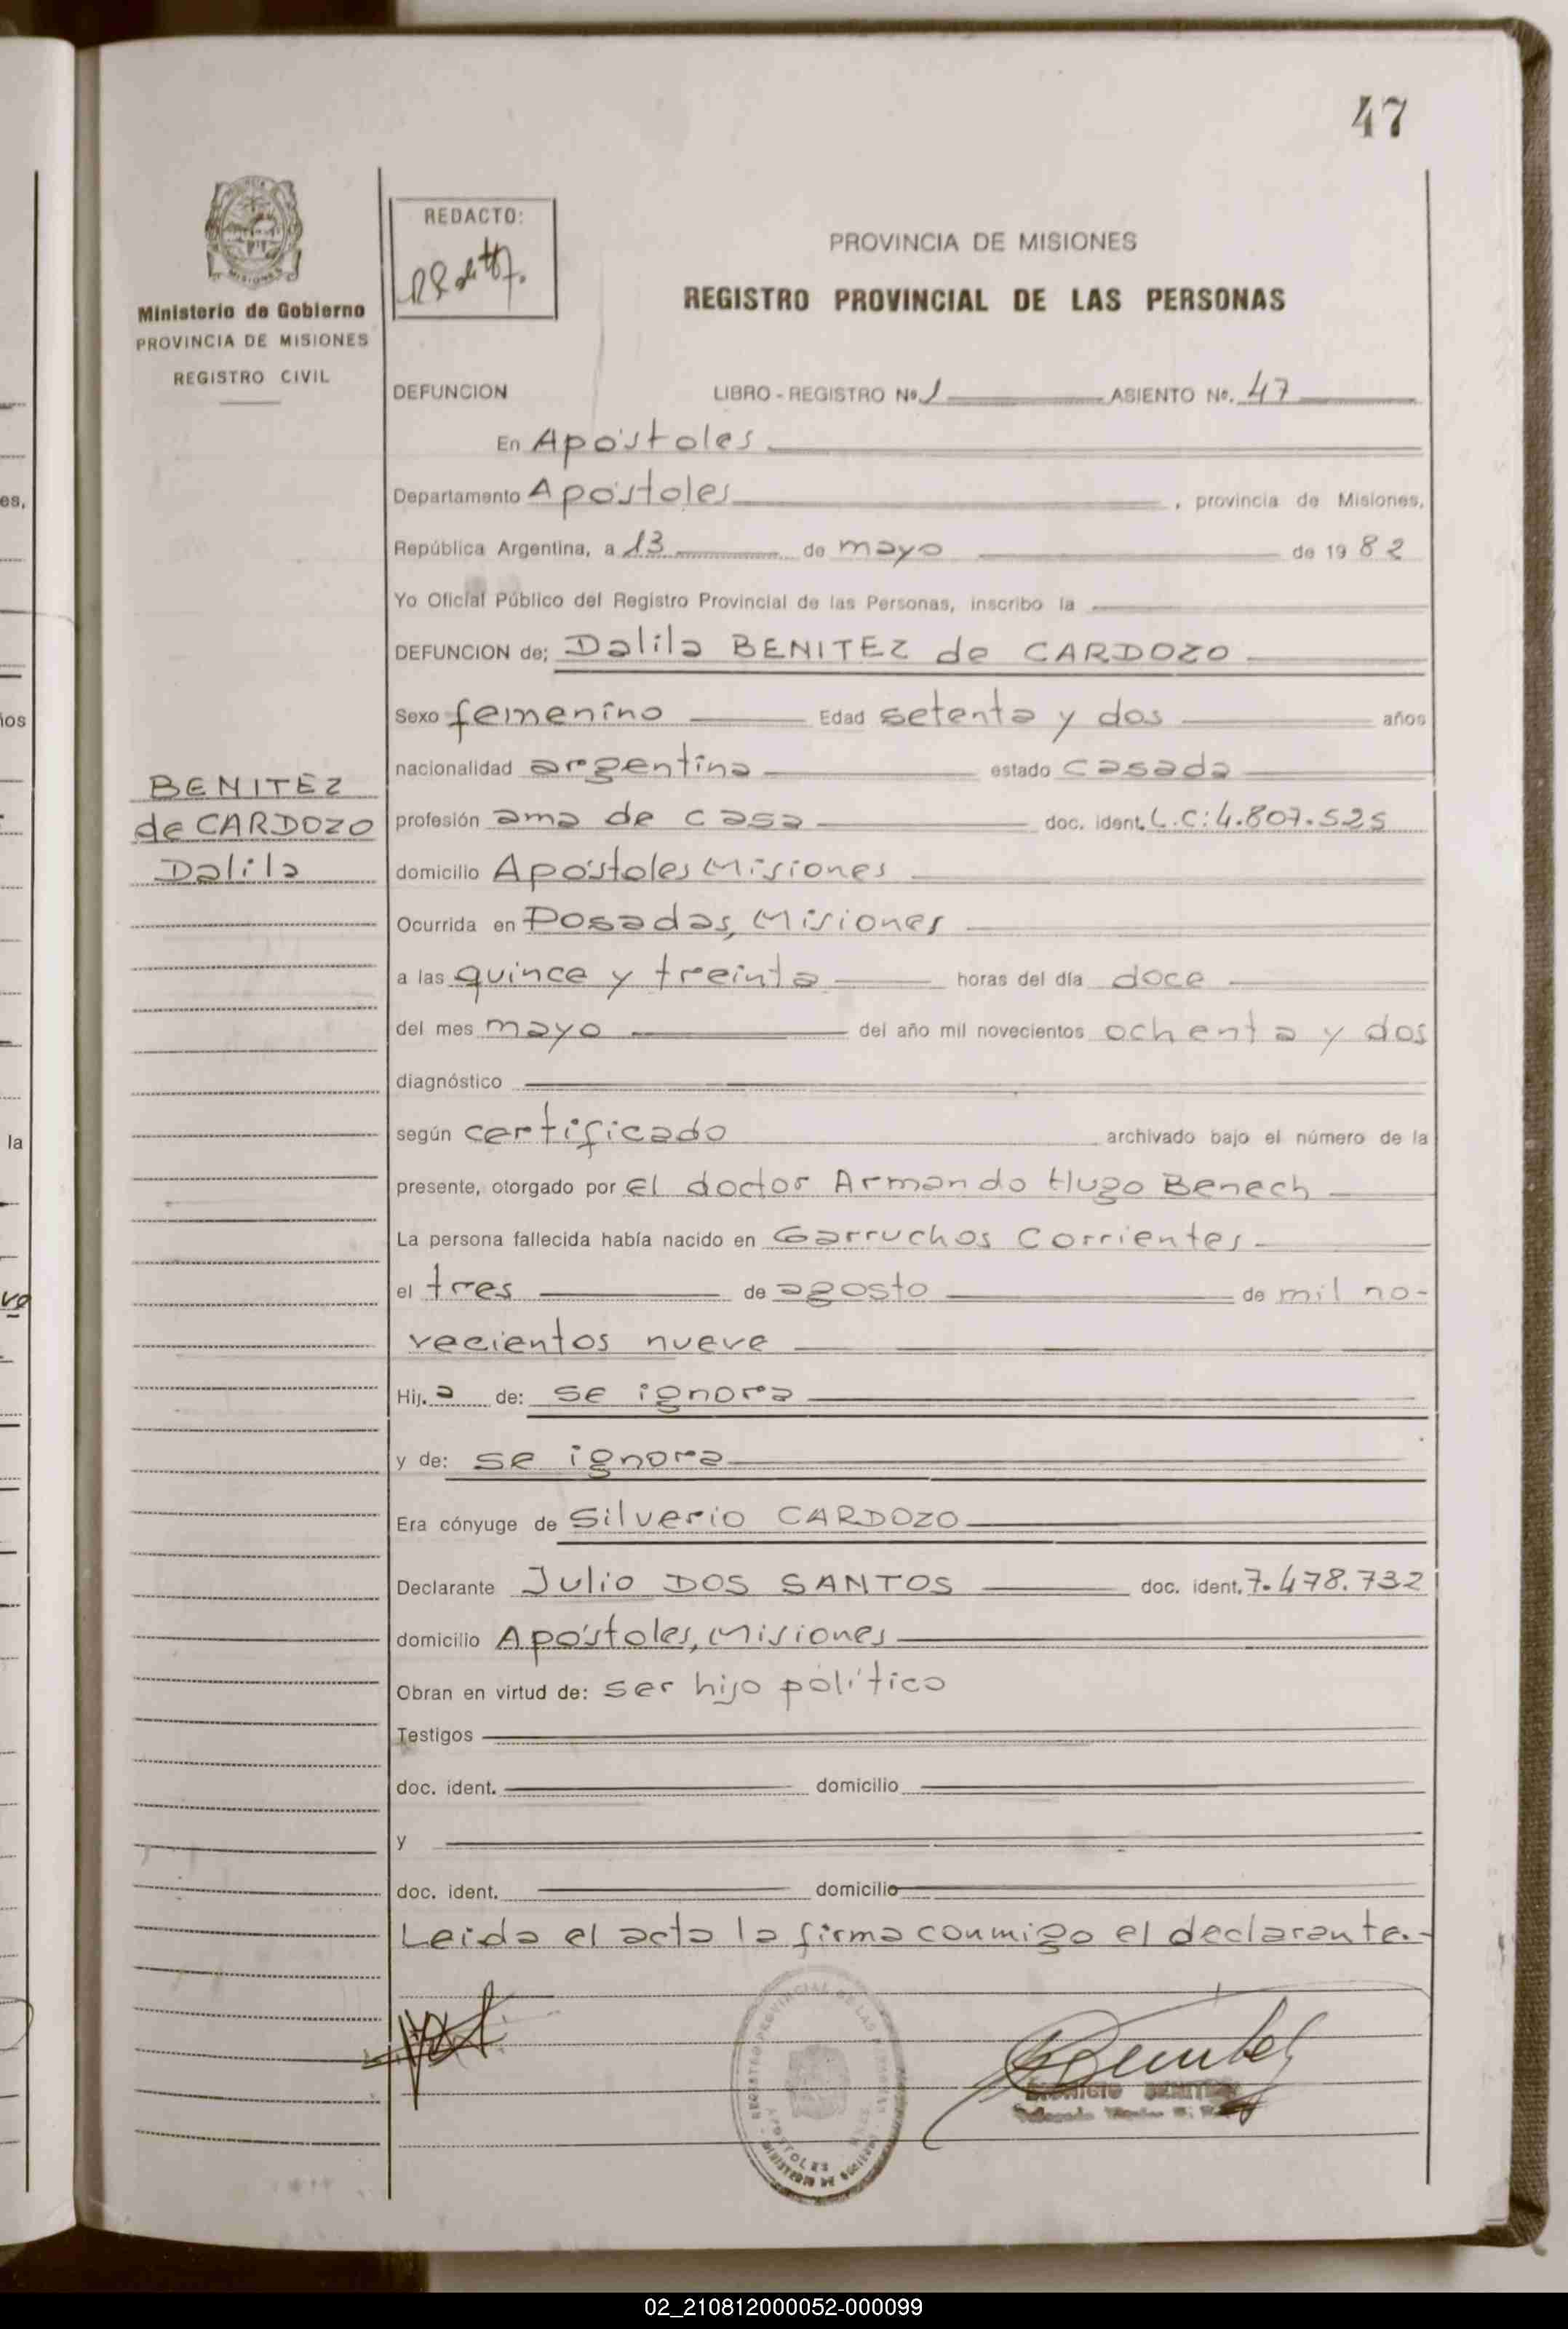 47
REDACTO:
Ministerio de Gobierno
PROVINCIA DE MISIONES
REGISTRO CIVIL
PROVINCIA DE MISIONES
REGISTRO PROVINCIAL DE LAS PERSONAS
DEFUNCION LIBRO - REGISTRO Nº 1 ASIENTO Nº. 47
En Apóstoles
Departamento Apóstoles, provincia de Misiones,
República Argentina, a 13 de mayo de 1982
Yo Oficial Público del Registro Provincial de las Personas, inscribo la
DEFUNCION de; Dalila BENITEZ de CARDOZO
Sexo femenino Edad setenta y dos años
nacionalidad argentina estado casada
BENITEZ
de CARDOZO
Dalila
profesión ama de casa doc. ident. L.C:4.807.525
domicilio Apóstoles Misiones
Ocurrida en Posadas, Misiones
a las quince y treinta horas del día doce
del mes mayo del año mil novecientos ochenta y dos
diagnóstico
según certificado archivado bajo el número de la
presente, otorgado por el doctor Armando Hugo Benech
La persona fallecida había nacido en Garruchos Corrientes
el tres de agosto de mil no-
vecientos nueve
Hij.a de: se ignora
y de: se ignora
Era cónyuge de Silverio CARDOZO
Declarante Julio DOS SANTOS doc. ident. 7.478.732
domicilio Apóstoles, Misiones
Obran en virtud de: ser hijo político
Testigos
doc. ident. domicilio
y
doc. ident. domicilio
Leida el acta la firma conmigo el declarante.-
REGISTRO PROVINCIAL DE LAS PERSONAS
APOSTOLES
MINISTERIO DE GOBIERNO
02_210812000052-000099